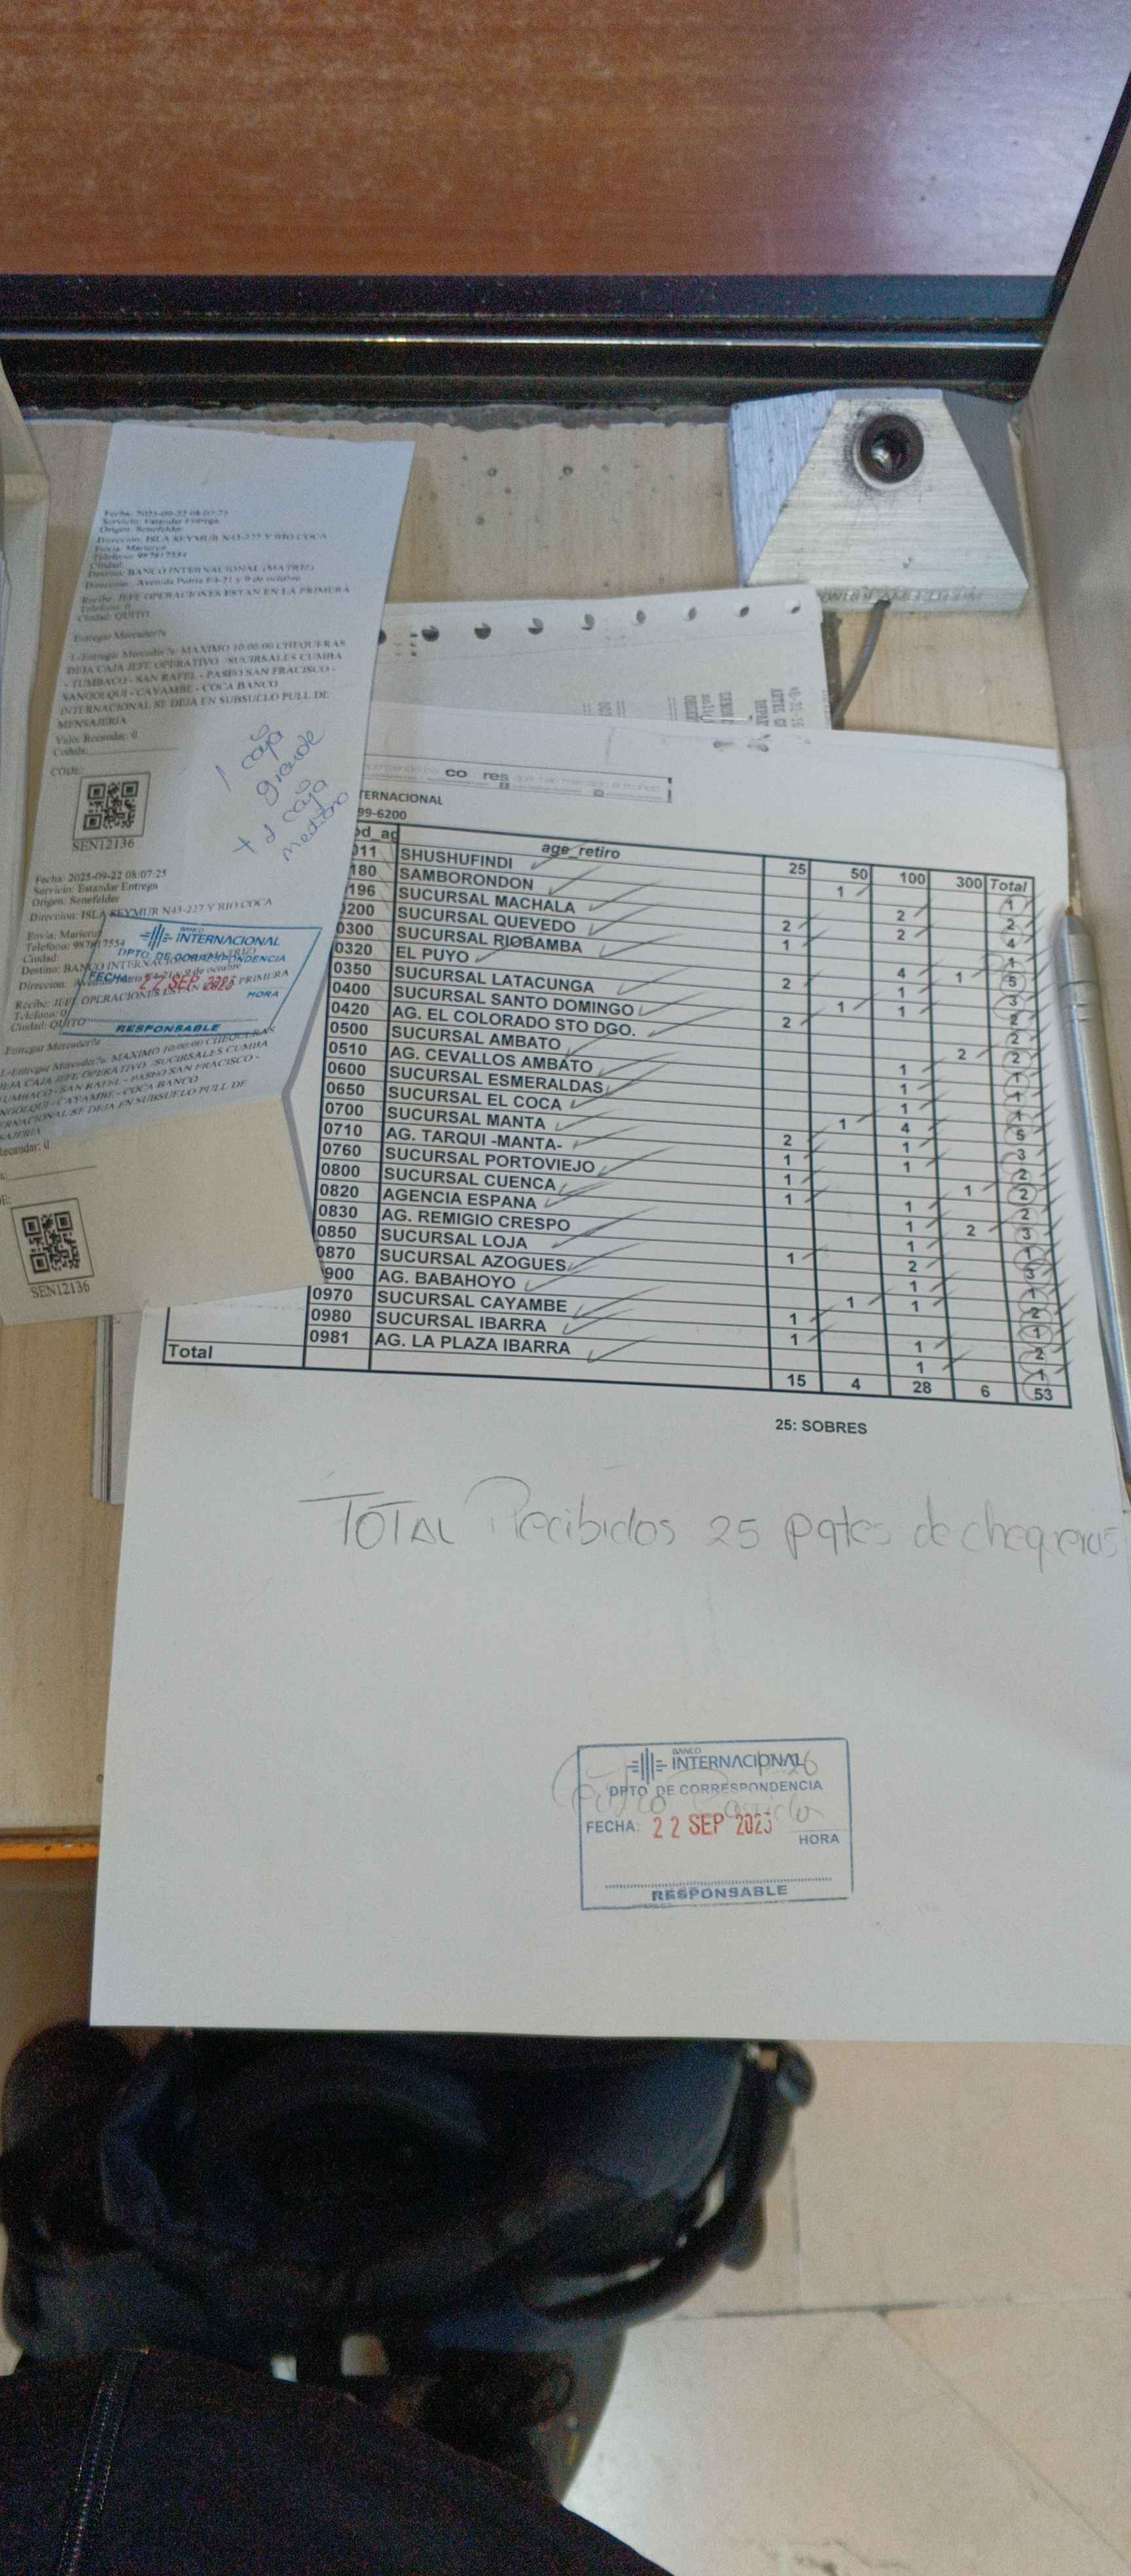 Fecha: 2025-09-22 08:07:25
Servicio: Estandar Entrega
Origen: Senefelder
Direccion: ISLA SEYMUR N43-227 Y RIO COCA
Envia: Maricruz
Telefono: 987817554
Ciudad:
Destino: BANCO INTERNACIONAL (MATRIZ)
Direccion: Avenida Patria E4-21 y 9 de octubre
Recibe: JEFE OPERACIONES ESTAN EN LA PRIMERA
Telefono: 0
Ciudad: QUITO
Entregar Mercader?a
1.-Entrega Mercader?a: MAXIMO 10:00:00 CHEQUERAS
DEJA CAJA JEFE OPERATIVO SUCIRSALES CUMBA
- TUMBACO - SAN RAFEL - PASEO SAN FRACISCO -
SANGOLQUI - CAYAMBE - COCA BANCO
INTERNACIONAL SE DEJA EN SUBSUELO PULL DE
MENSAJERIA
Valor Recaudar: 0
CODE:
SEN12136
1 caja
grande
+ 1 caja
mediana
Fecha: 2025-09-22 08:07:25
Servicio: Estandar Entrega
Origen: Senefelder
Direccion: ISLA SEYMUR N43-227 Y RIO COCA
Envia: Maricruz
Telefono: 987817554
Ciudad:
BANCO
INTERNACIONAL
DPTO DE CORRESPONDENCIA
FECHA: 22 SEP 2025
HORA
RESPONSABLE
Ciudad: QUITO
Entregar Mercader?a
1.-Entregar Mercader?a: MAXIMO 10:00:00 CHEQUERAS
EJA CAJA JEFE OPERATIVO SUCIRSALES CUMBA
TUMBACO - SAN RAFEL - PASEO SAN FRACISCO -
NGOLQUI - CAYAMBE - COCA BANCO
ERNACIONAL SE DEJA EN SUBSUELO PULL DE
SAJERIA
Recaudar: 0
SEN12136
TERNACIONAL
99-6200
od_ag age_retiro 25 50 100 300 Total
011 SHUSHUFINDI 1 1
180 SAMBORONDON 2 2
196 SUCURSAL MACHALA 2 2 4
0200 SUCURSAL QUEVEDO 1 1
0300 SUCURSAL RIOBAMBA 4 1 5
0320 EL PUYO 2 1 3
0350 SUCURSAL LATACUNGA 1 1 2
0400 SUCURSAL SANTO DOMINGO 2 2
0420 AG. EL COLORADO STO DGO. 2 2
0500 SUCURSAL AMBATO 1 1
0510 AG. CEVALLOS AMBATO 1 1
0600 SUCURSAL ESMERALDAS 1 1
0650 SUCURSAL EL COCA 1 4 5
0700 SUCURSAL MANTA 2 1 3
0710 AG. TARQUI -MANTA- 1 1 2
0760 SUCURSAL PORTOVIEJO 1 1 2
0800 SUCURSAL CUENCA 1 1 2
0820 AGENCIA ESPANA 1 2 3
0830 AG. REMIGIO CRESPO 1 1
0850 SUCURSAL LOJA 1 2 3
0870 SUCURSAL AZOGUES 1 1
0900 AG. BABAHOYO 1 1 2
0970 SUCURSAL CAYAMBE 1 1
0980 SUCURSAL IBARRA 1 1 2
0981 AG. LA PLAZA IBARRA 1 1
Total 15 4 28 6 53
25: SOBRES
TOTAL Recibidos 25 pqtes de chequeras
BANCO
INTERNACIONAL
DPTO DE CORRESPONDENCIA
FECHA: 22 SEP 2025
HORA
RESPONSABLE